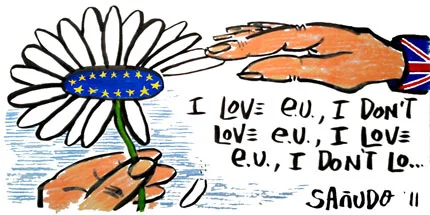 I LOVE e.U., I DON'T
LOVE e.U., I LOVE
e.U., I DON'T LO...
SAñUDO '11